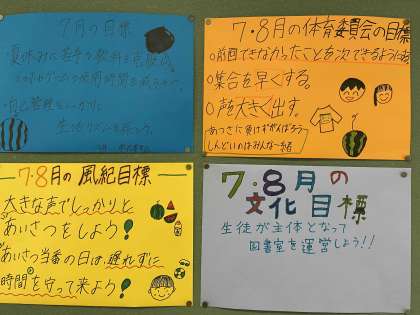 7月の目標
・夏休みに苦手な教科を克服し
・自己管理をしっかり
生活リズムを保つ。
7・8月の体育委員会の目標
○前回できなかったことを次できるようにする
○集合を早くする。
○声を大きく出す。
あつさに負けずがんばろう〜
しんどいのはみんな〜緒
7・8月の 風紀目標
大きな声でしっかりと
あいさつをしよう!
あいさつ当番の日は、遅れずに
時間を守って来よう!
7・8月の
文化目標
生徒が主体となって
図書室を運営しよう!!